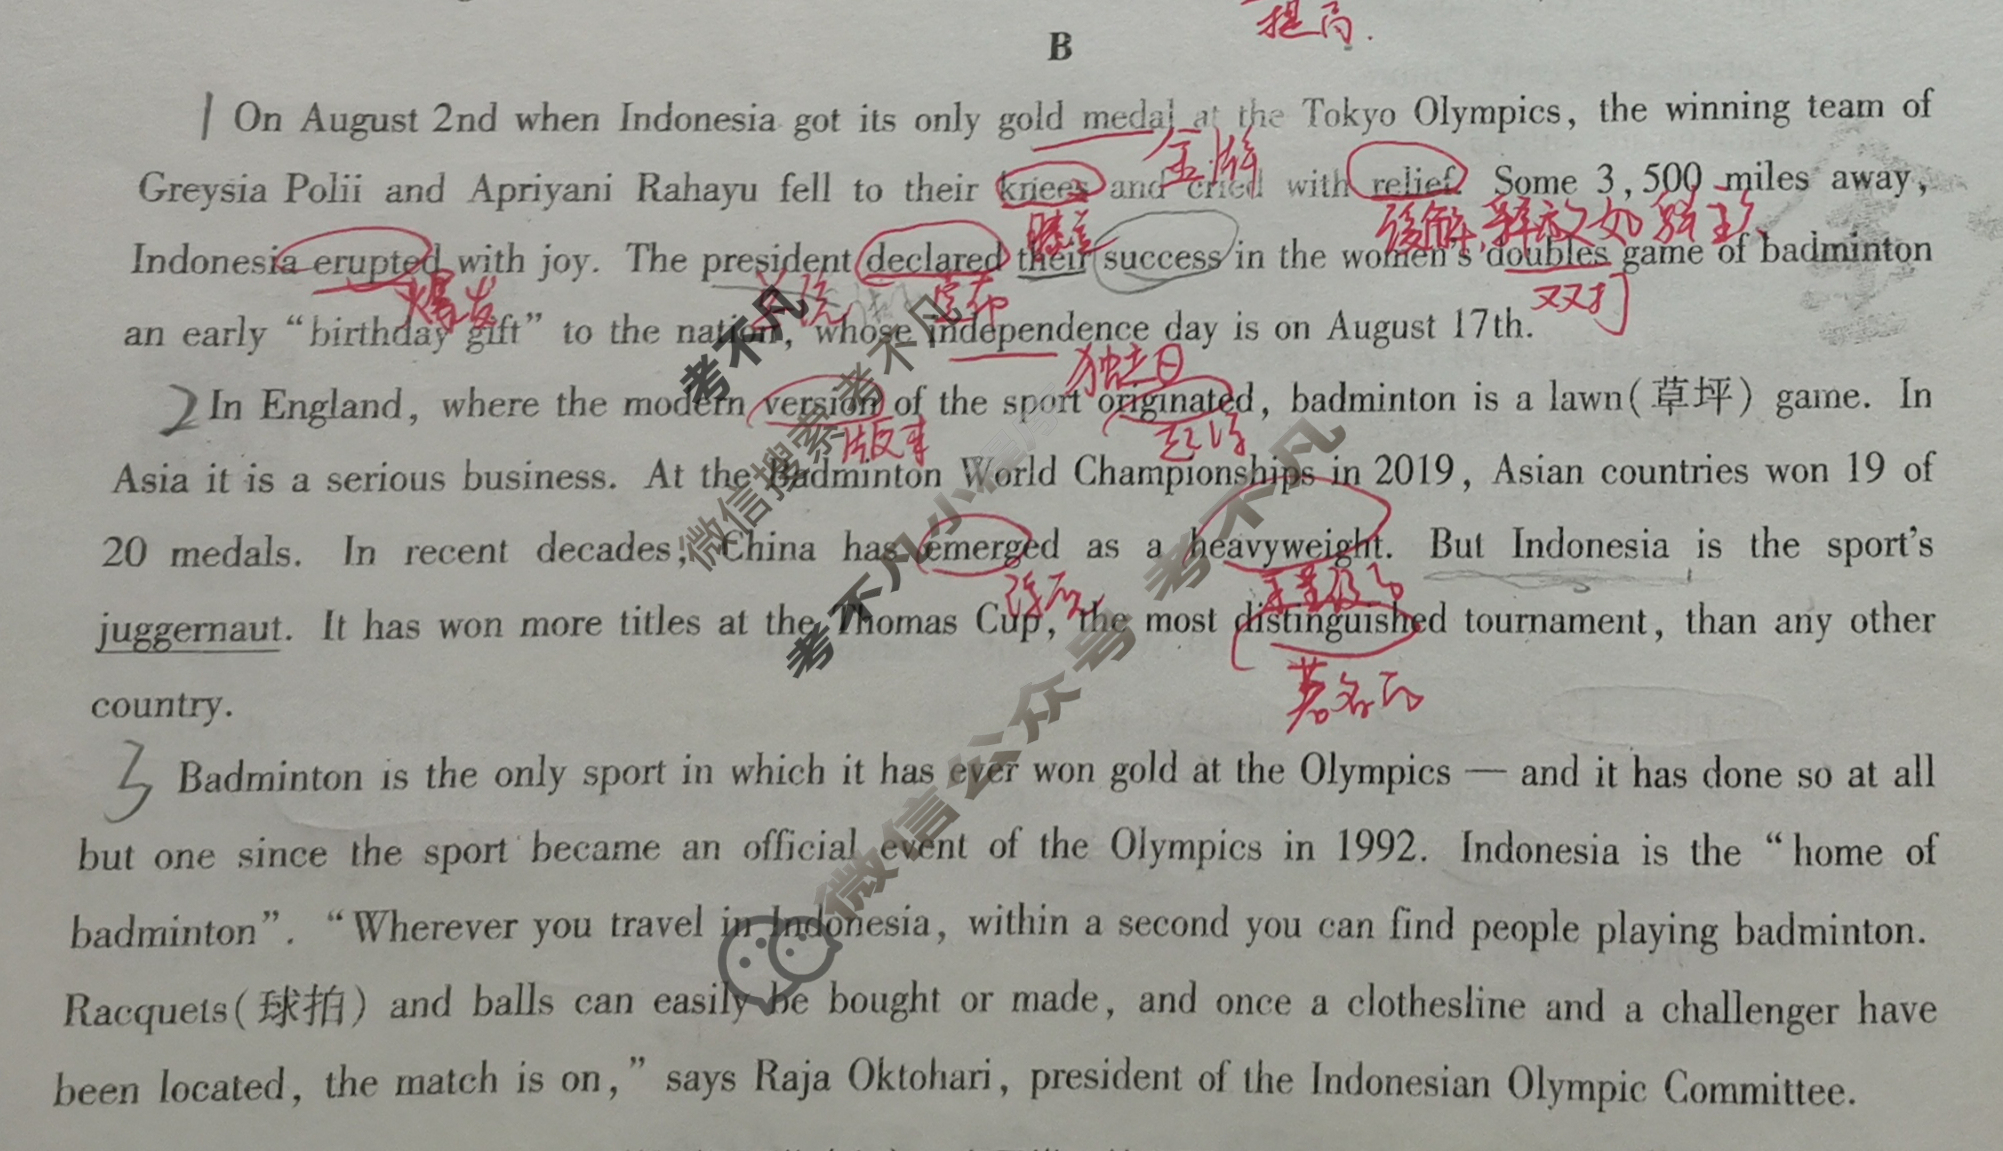 提高.
B
1 On August 2nd when Indonesia got its only gold medal at the Tokyo Olympics, the winning team of
金牌
Greysia Polii and Apriyani Rahayu fell to their knees and cried with relief. Some 3,500 miles away,
膝盖
Indonesia erupted with joy. The president declared their success in the women's doubles game of badminton
爆发 总统 宣布 双打
an early “birthday gift” to the nation, whose independence day is on August 17th.
独立日
2 In England, where the modern version of the sport originated, badminton is a lawn(草坪) game. In
版本 起源
Asia it is a serious business. At the Badminton World Championships in 2019, Asian countries won 19 of
20 medals. In recent decades, China has emerged as a heavyweight. But Indonesia is the sport's
juggernaut. It has won more titles at the Thomas Cup, the most distinguished tournament, than any other
著名的
country.
3 Badminton is the only sport in which it has ever won gold at the Olympics — and it has done so at all
but one since the sport became an official event of the Olympics in 1992. Indonesia is the “home of
badminton”. “Wherever you travel in Indonesia, within a second you can find people playing badminton.
Racquets(球拍) and balls can easily be bought or made, and once a clothesline and a challenger have
been located, the match is on,” says Raja Oktohari, president of the Indonesian Olympic Committee.
考不凡
微信搜索 考不凡
考不凡小程序
微信公众号 考不凡